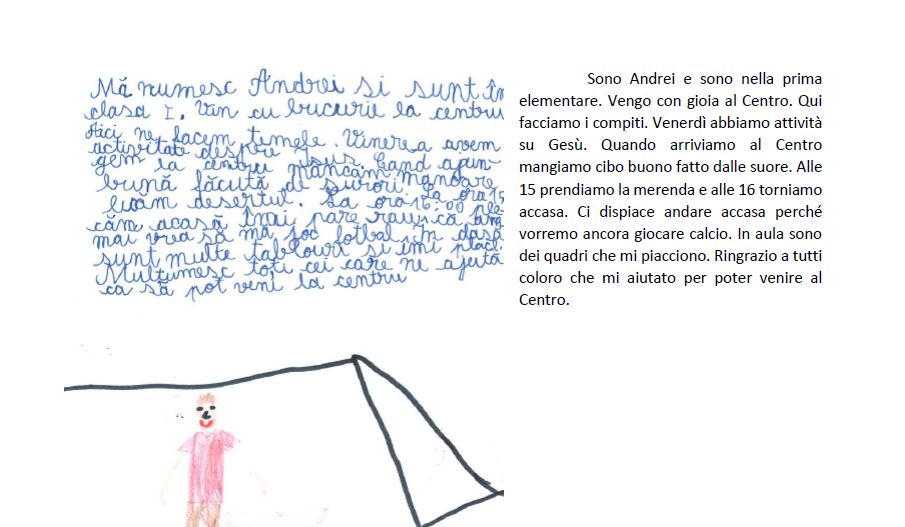 Mă numesc Andrei si sunt în
clasa I. Vin cu bucurie la centru
Aici ne facem temele. Vinerea avem
activitate despre Isus. Cand ajun-
gem la centru mâncăm mâncare
bună făcută de surori. La ora 15
luăm desertul. La ora 16:00 ple-
căm acasă îmi pare rau că
mai vrea să mă joc fotbal. În clasă
sunt multe tablouri si îmi plac.
Mulțumesc toti cei care ne ajută
ca să pot veni la centru
Sono Andrei e sono nella prima
elementare. Vengo con gioia al Centro. Qui
facciamo i compiti. Venerdì abbiamo attività
su Gesù. Quando arriviamo al Centro
mangiamo cibo buono fatto dalle suore. Alle
15 prendiamo la merenda e alle 16 torniamo
accasa. Ci dispiace andare accasa perché
vorremo ancora giocare calcio. In aula sono
dei quadri che mi piacciono. Ringrazio a tutti
coloro che mi aiutato per poter venire al
Centro.